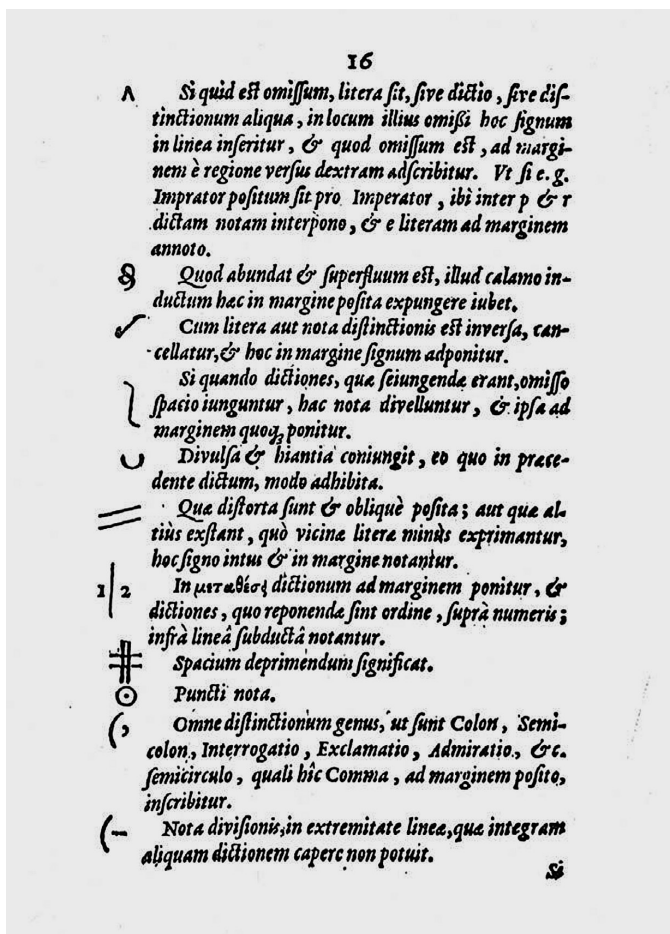 16
Si quid est omissum, litera sit, sive dictio, sive dis-
tinctionum aliqua, in locum illius omißi hoc signum
in linea inseritur, & quod omissum est, ad margi-
nem è regione versus dextram adscribitur. Vt si e. g.
Imprator positum sit pro Imperator, ibi inter p & r
dictam notam interpono, & e literam ad marginem
annoto.
Quod abundat & superfluum est, illud calamo in-
ductum hæc in margine posita expungere iubet.
Cum litera aut nota distinctionis est inversa, can-
cellatur, & hoc in margine signum adponitur.
Si quando dictiones, quæ seiungendæ erant, omisso
spacio iunguntur, hac nota divelluntur, & ipsa ad
marginem quoq; ponitur.
Divulsa & hiantia coniungit, eo quo in præce-
dente dictum, modo adhibita.
Quæ distorta sunt & obliquè posita; aut quæ al-
tiùs exstant, quò vicinæ literæ minùs exprimantur,
hoc signo intus & in margine notantur.
1 | 2 In μεταθέσῃ dictionum ad marginem ponitur, &
dictiones, quo reponendæ sint ordine, suprà numeris;
infrà lineâ subductâ notantur.
Spacium deprimendum significat.
Puncti nota.
(, Omne distinctionum genus, ut sunt Colon, Semi-
colon, Interrogatio, Exclamatio, Admiratio, &c.
semicirculo, quali hîc Comma, ad marginem posito,
inscribitur.
(- Nota divisionis, in extremitate lineæ, quæ integram
aliquam dictionem capere non potuit.
Si